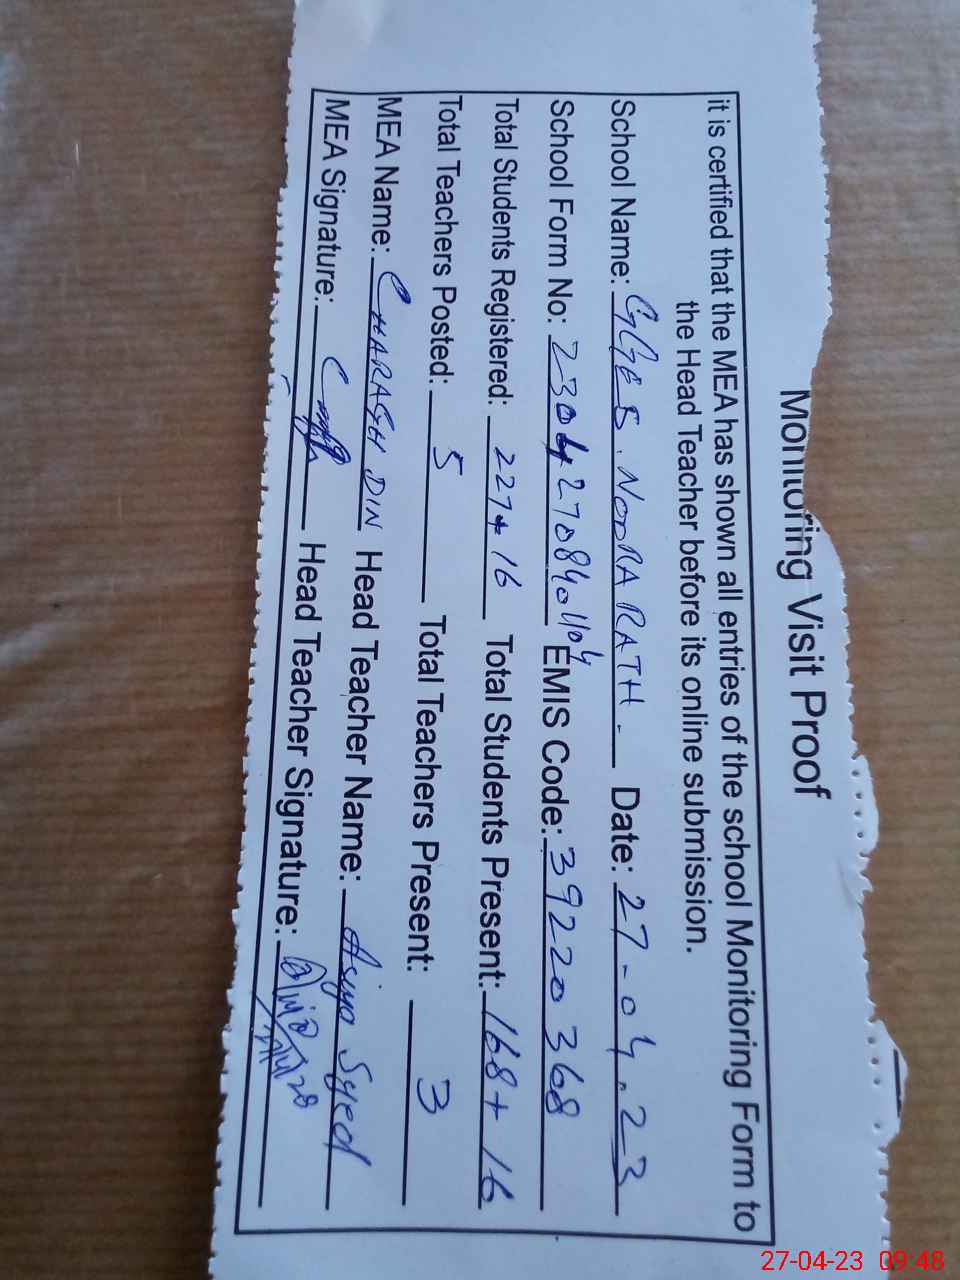 Monitoring Visit Proof
it is certified that the MEA has shown all entries of the school Monitoring Form to
the Head Teacher before its online submission.
School Name: GGES. NODRA RATH. Date: 27-04.23
School Form No: 2304270840404 EMIS Code: 39220368
Total Students Registered: 227+16 Total Students Present: 168+16
Total Teachers Posted: 5 Total Teachers Present: 3
MEA Name: CHARAGH DIN Head Teacher Name: Asiya Syed
MEA Signature: Head Teacher Signature:
27-04-23 09:48